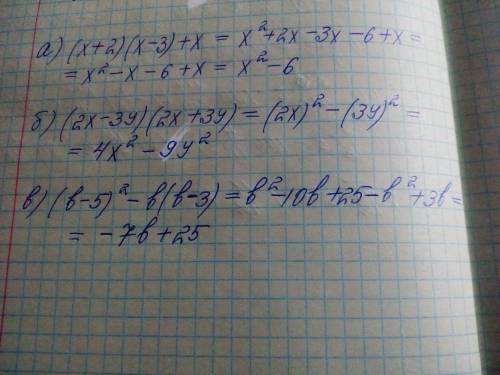 а) (x+2)(x-3)+x = x²+2x-3x-6+x=
= x²-x-6+x = x²-6
б) (2x-3y)(2x+3y)=(2x)²-(3y)²=
= 4x²-9y²
в) (b-5)²-b(b-3)=b²-10b+25-b²+3b=
= -7b+25